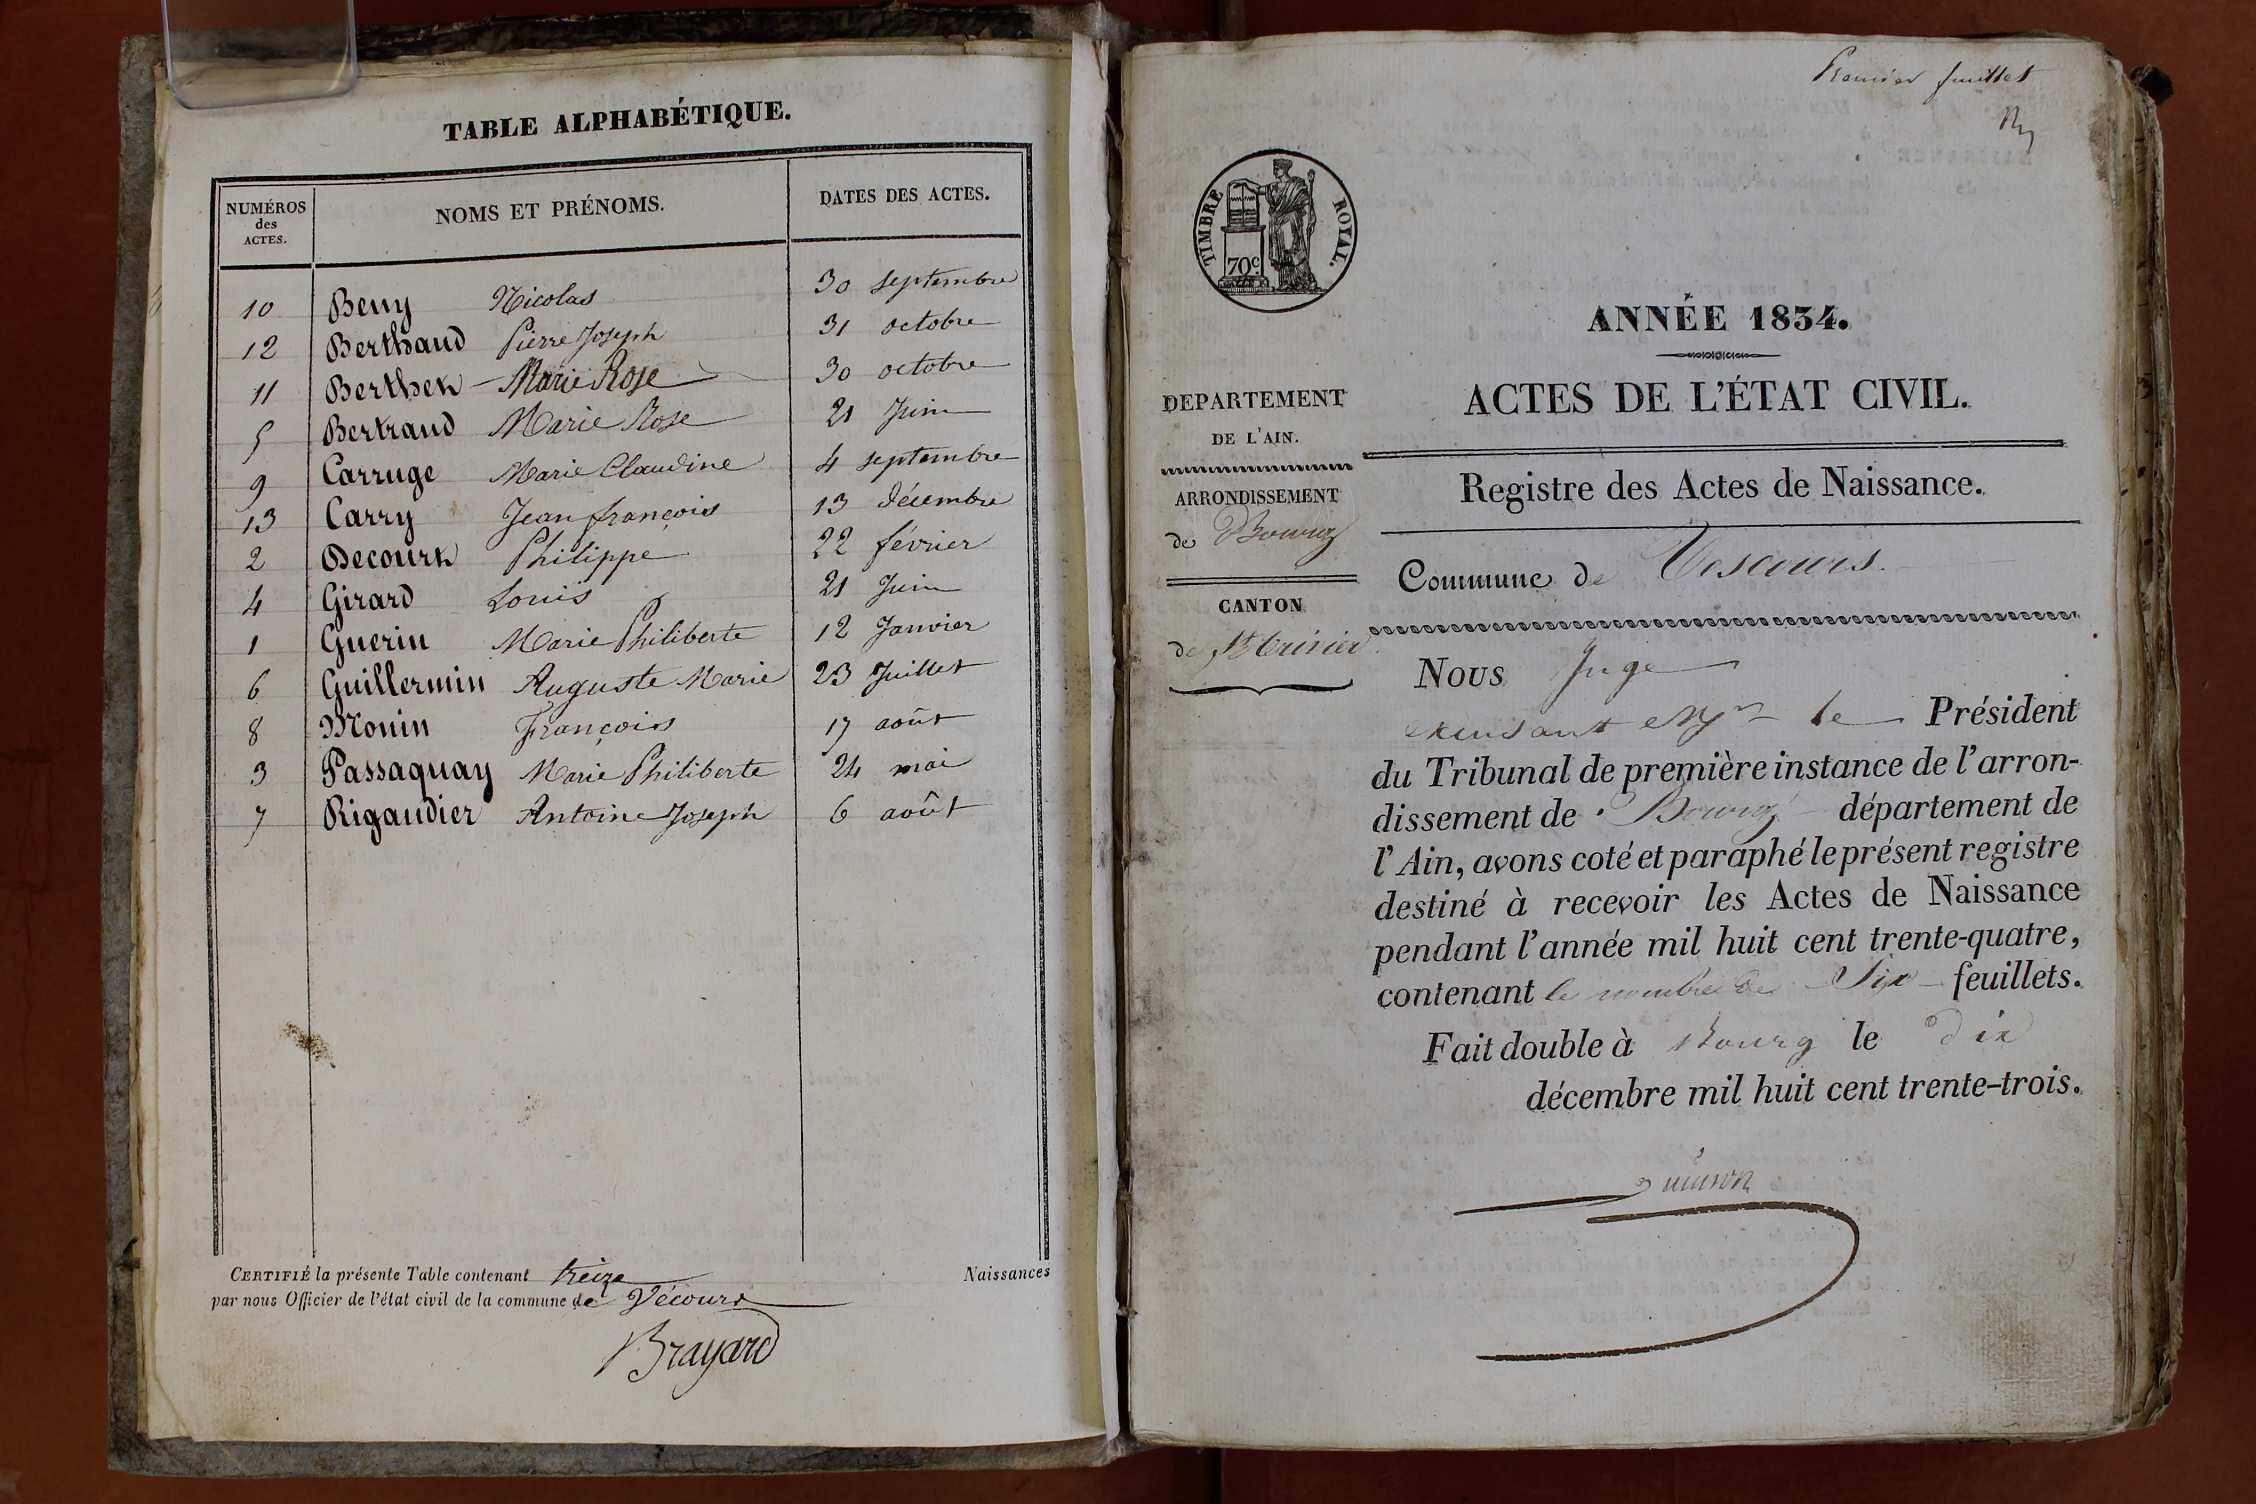 TABLE ALPHABÉTIQUE.
NUMÉROS des ACTES. NOMS ET PRÉNOMS. DATES DES ACTES.
10 Beny Nicolas 30 septembre
12 Berthaud Pierre Joseph 31 octobre
11 Berthet Marie Rose 30 octobre
5 Bertrand Marie Rose 21 Juin
9 Carruge Marie Claudine 4 septembre
13 Carry Jean françois 13 décembre
2 Decourt Philippe 22 février
4 Girard Louis 21 Juin
1 Guerin Marie Philiberte 12 Janvier
6 Guillermin Auguste Marie 23 Juillet
8 Monin François 17 août
3 Passaquay Marie Philiberte 24 mai
7 Rigaudier Antoine Joseph 6 août
CERTIFIÉ la présente Table contenant treize Naissances
par nous Officier de l'état civil de la commune de Vécours
Brayard
Premier feuillet
TIMBRE ROYAL.
70c.
ANNÉE 1834.
ACTES DE L'ÉTAT CIVIL.
Registre des Actes de Naissance.
Commune de Vescours.
DEPARTEMENT
DE L'AIN.
ARRONDISSEMENT
de Bourg
CANTON
de St Trivier
Nous Juge
le Président
du Tribunal de première instance de l'arron-
dissement de Bourg département de
l'Ain, avons coté et paraphé le présent registre
destiné à recevoir les Actes de Naissance
pendant l'année mil huit cent trente-quatre,
contenant le nombre de Six feuillets.
Fait double à Bourg le dix
décembre mil huit cent trente-trois.